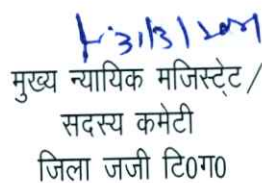 31/3/2021
मुख्य न्यायिक मजिस्ट्रेट /
सदस्य कमेटी
जिला जजी टि0ग0